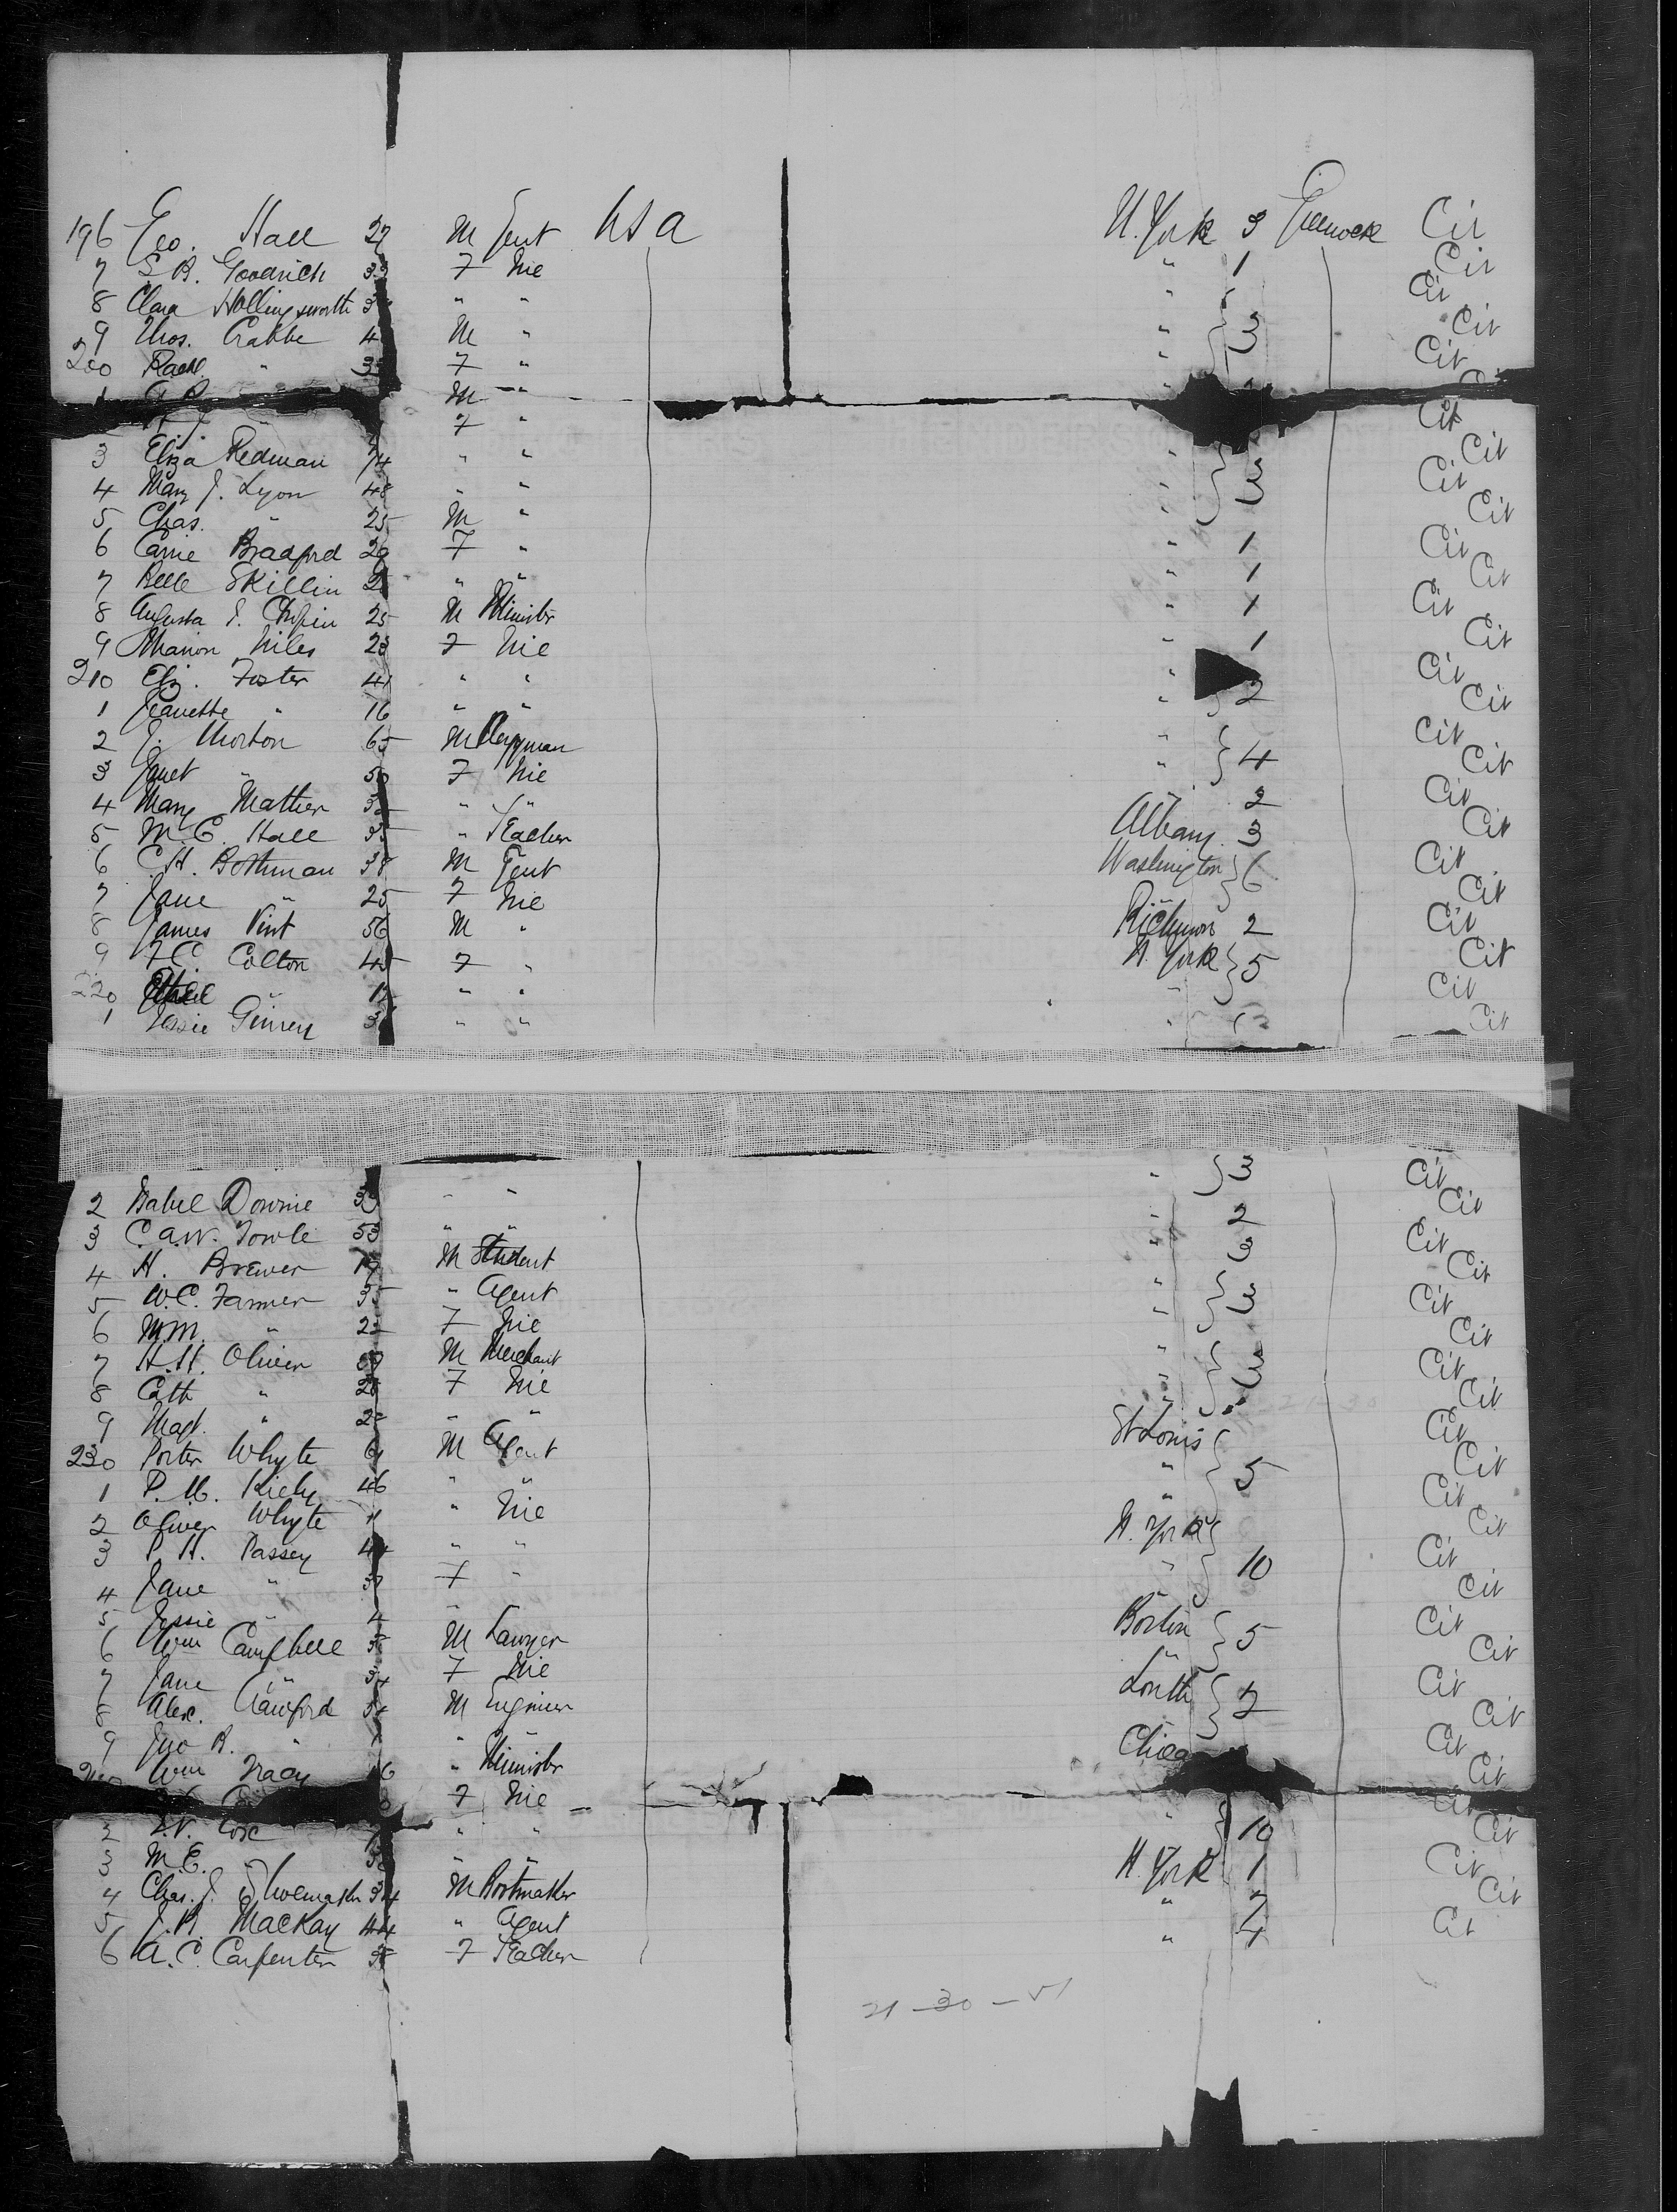 196 Geo. Hall 27 M Gent USA N. York 3 Greenock Cit
7 S. B. Goodrich 33 F Nie " 1 Cit
8 Clara Hollingsworth 3 " " " Cit
9 Thos. Crabbe 4 M " " 3 Cit
200 Rachl " 33 F " " Cit
1 M " "
F " Cit
3 Eliza Redman 74 " " " 3 Cit
4 Mary J. Lyon 48 " " " Cit
5 Chas. " 25 M " Cit
6 Carrie Bradford 29 F " " 1 Cit
7 Belle Skillin " " " 1 Cit
8 Augusta J. Chapin 25 M Minister " 1 Cit
9 Marion Niles 23 F Nie " 1 Cit
210 Eliz. Foster 41 " " " 2 Cit
1 Jeanette " 16 " " " Cit
2 J. Morton 65 M Clergyman " 4 Cit
3 Janet " 50 F Nie " Cit
4 Mary Mather 32 " " " 2 Cit
5 M. E. Hall 35 " Teacher Albany 3 Cit
6 C. H. Bothman 38 M Gent Washington 6 Cit
7 Jane " 25 F Nie " Cit
8 James Vint 56 M " Richmon 2 Cit
9 F. C. Colton 45 F " N. York 5 Cit
220 " 1 " " " Cit
1 Jessie 3 " " " Cit
2 Isabel Downie 33 " " " 3 Cit
3 C. A. W. Towle 53 " " " 2 Cit
4 H. Brewer 19 M Student " 3 Cit
5 W. C. Farmer 35 " Agent " 3 Cit
6 M. M. " 22 F Nie " Cit
7 H. H. Oliver M Merchant " 3 Cit
8 Cath " 28 F Nie " Cit
9 Magt. " 2 " " " Cit
230 Porter Whyte M Agent St Louis 5 Cit
1 P. M. Kiely 46 " " " Cit
2 Oliver Whyte 11 " Nie " Cit
3 P. H. Passey 4 " " N. York 10 Cit
4 Jane " 3 F " " Cit
5 Jessie " 4 " Cit
6 Wm Campbell 35 M Lawyer Boston 5 Cit
7 Jane " 34 F Nie " Cit
8 Alex. Crawford M Engineer 2 Cit
9 Jno R. " " " Cit
Wm Tracy 6 " Minister Chica Cit
F Nie
2 Cox " " " 10 Cit
3 M. E. " " "
4 Chas. J. Shoemaker 34 M Bootmaker N. York 1 Cit
5 J. H. Mackay 44 " Agent " 2 Cit
6 A. C. Carpenter 38 F Teacher " 4 Cit
21 - 30 - 51